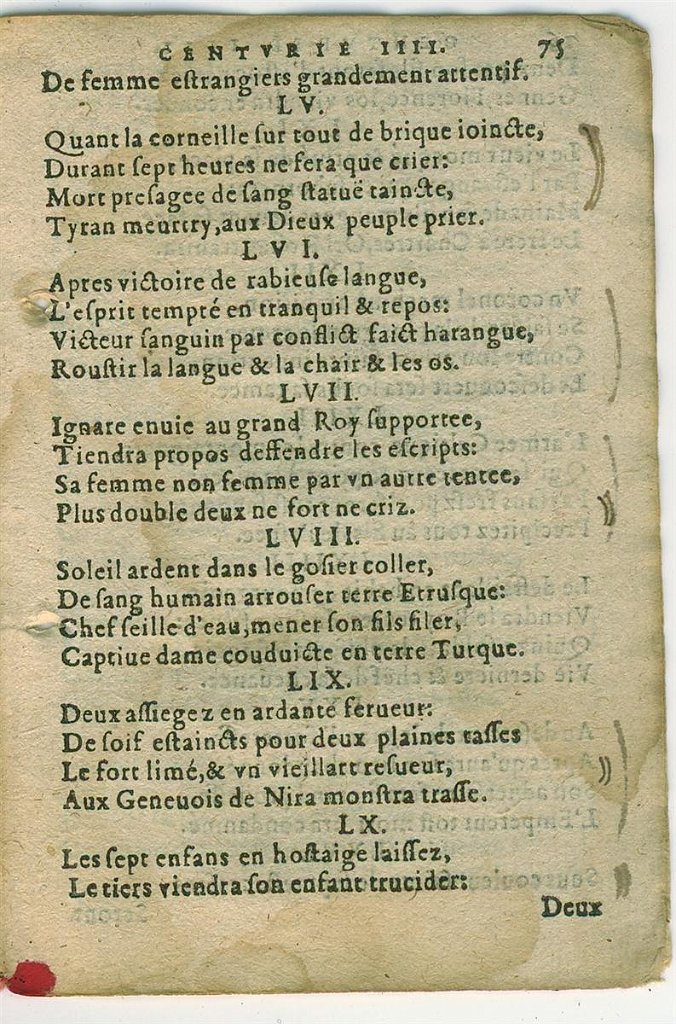 CENTVRIE IIII. 75
De femme eſtrangiers grandement attentif.
LV.
Quant la corneille ſur tout de brique ioincte,
Durant ſept heures ne fera que crier:
Mort preſagee de ſang ſtatuë taincte,
Tyran meurtry,aux Dieux peuple prier.
LVI.
Apres victoire de rabieuſe langue,
L'eſprit tempté en tranquil & repos:
Victeur ſanguin par conflict faict harangue,
Rouſtir la langue & la chair & les os.
LVII.
Ignare enuie au grand Roy ſupportee,
Tiendra propos deffendre les eſcripts:
Sa femme non femme par vn autre tentee,
Plus double deux ne fort ne criz.
LVIII.
Soleil ardent dans le goſier coller,
De ſang humain arrouſer terre Etruſque:
Chef ſeille d'eau,mener ſon fils filer,
Captiue dame couduicte en terre Turque.
LIX.
Deux aſſiegez en ardante ferueur:
De ſoif eſtaincts pour deux plaines taſſes
Le fort limé,& vn vieillart reſueur,
Aux Geneuois de Nira monſtra traſſe.
LX.
Les ſept enfans en hoſtaige laiſſez,
Le tiers viendra ſon enfant trucider:
Deux